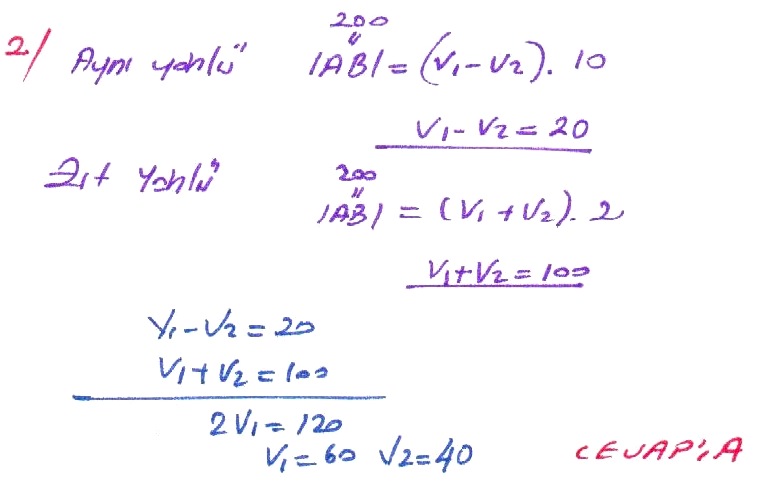 200
2/ Aynı yönlü |AB| = (V₁-V₂). 10
V₁- V₂ = 20
Zıt Yönlü 200
|AB| = (V₁ + V₂). 2
V₁+V₂ = 100
V₁-V₂ = 20
V₁+V₂ = 100
2V₁= 120
V₁=60 V2=40 CEVAP:A